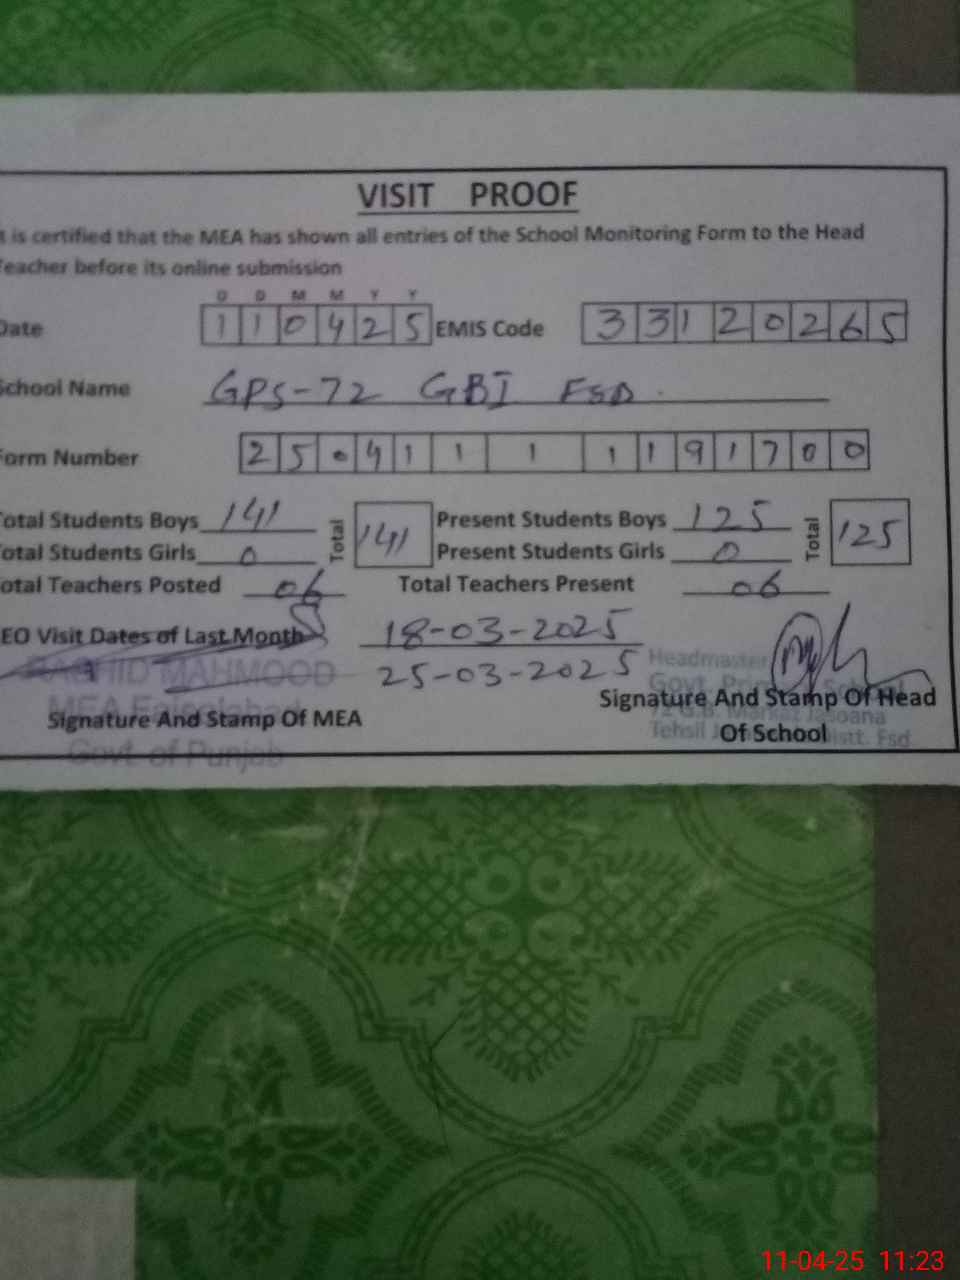 VISIT PROOF
t is certified that the MEA has shown all entries of the School Monitoring Form to the Head
Teacher before its online submission
D D M M Y Y
Date 110425 EMIS Code 33120265
School Name GPS-72 GBI FSD.
Form Number 25041111191700
Total Students Boys 141 Total 141 Present Students Boys 125 Total 125
Total Students Girls 0 Present Students Girls 0
Total Teachers Posted 06 Total Teachers Present 06
EO Visit Dates of Last Month 18-03-2025
25-03-2025
RASHID MAHMOOD
MEA Faisalabad
Govt. of Punjab
Signature And Stamp Of MEA
Headmaster
Govt. School
G.B. Markaz Jasoana
Tehsil Distt. Fsd
Signature And Stamp Of Head
Of School
11-04-25 11:23